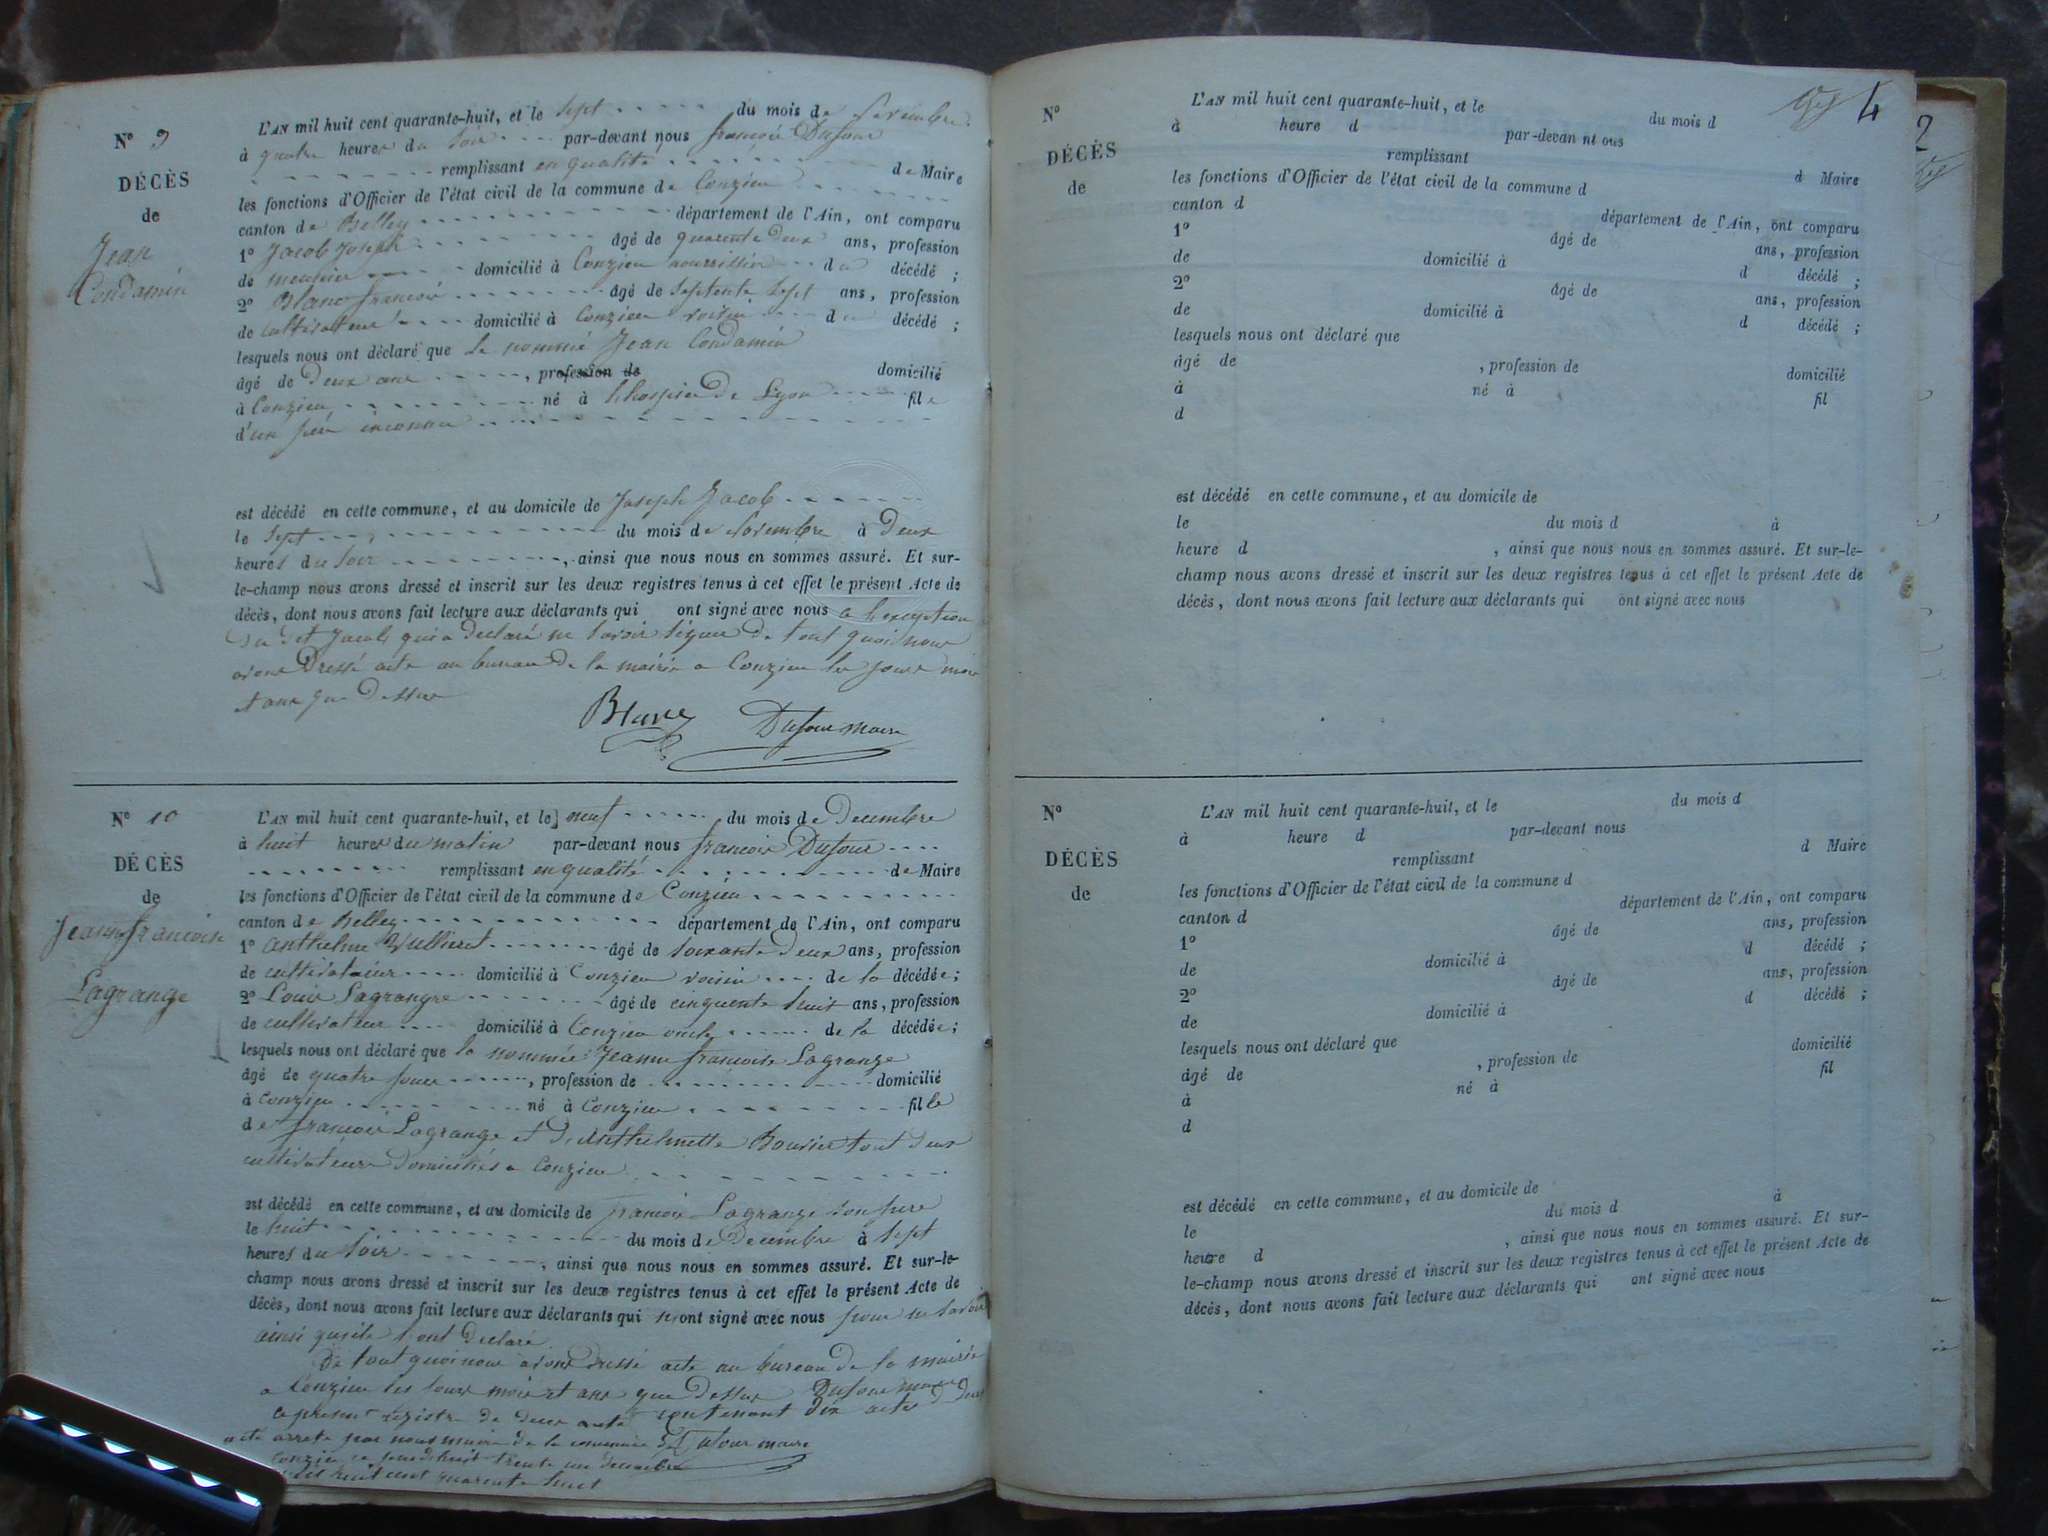 N° 9
DÉCÈS
de
Jean
Condamin
L'AN mil huit cent quarante-huit, et le sept du mois de Novembre
à quatre heures du soir par-devant nous françois Dufour
remplissant en qualité de Maire
les fonctions d'Officier de l'état civil de la commune de Conzieu
canton de Belley département de l'Ain, ont comparu
1° Jacob Joseph âgé de quarente deux ans, profession
de domicilié à Conzieu nourissier du décédé ;
2° Blanc francois âgé de septente sept ans, profession
de cultivateur domicilié à Conzieu voisin du décédé ;
lesquels nous ont déclaré que le nommé Jean Condamin
âgé de deux ans, profession de domicilié
à Conzieu né à lhospice de Lyon fils
d'un père inconnu
est décédé en cette commune, et au domicile de Joseph Jacob
le sept du mois de Novembre à deux
heures du soir, ainsi que nous nous en sommes assuré. Et sur-
le-champ nous avons dressé et inscrit sur les deux registres tenus à cet effet le présent Acte de
décès, dont nous avons fait lecture aux déclarants qui ont signé avec nous a l'exception
du dit Jacob qui a declaré ne savoir signer de tout quoi nous
avons dressé acte au bureau de la mairie a Conzieu les jour mois
et ans que dessus
Blanc Dufour maire
N° 10
DÉCÈS
de
Jeanne francoise
Lagrange
L'AN mil huit cent quarante-huit, et le neuf du mois de Decembre
à huit heures du matin par-devant nous francois Dufour
remplissant en qualité de Maire
les fonctions d'Officier de l'état civil de la commune de Conzieu
canton de Belley département de l'Ain, ont comparu
1° Anthelme Vullierot âgé de soixante deux ans, profession
de cultivateur domicilié à Conzieu voisin de la décédée ;
2° Louis Lagrangre âgé de cinquente huit ans, profession
de cultivateur domicilié à Conzieu oncle de la décédée ;
lesquels nous ont déclaré que la nommée Jeanne francoise Lagrange
âgé de quatre jours, profession de domicilié
à conzieu né à Conzieu fille
de francois Lagrange et d'Anthelmette Bouvier tout deux
cultivateurs domiciliés a Conzieu
est décédé en cette commune, et au domicile de francois Lagrange son pere
le huit du mois de Decembre à sept
heures du soir, ainsi que nous nous en sommes assuré. Et sur-le-
champ nous avons dressé et inscrit sur les deux registres tenus à cet effet le présent Acte de
décès, dont nous avons fait lecture aux déclarants qui n'ont signé avec nous pour ne savoir
ainsi quils l'ont declaré
De tout quoi nous avons dressé acte au bureau de la mairie
a Conzieu les jours mois et ans que dessus Dufour maire
ce present registre de deces contenant dix actes de deces
arreté par nous maire de la commune de Dufour maire
Conzieu ce jourdhuit trente un decembre
mil huit cent quarente huit
4
2
N°
DÉCÈS
de
L'AN mil huit cent quarante-huit, et le du mois d
à heure d par-devan nt ous
remplissant d Maire
les fonctions d'Officier de l'état civil de la commune d
canton d département de l'Ain, ont comparu
1° âgé de ans, profession
de domicilié à d décédé ;
2° âgé de ans, profession
de domicilié à d décédé ;
lesquels nous ont déclaré que
âgé de , profession de domicilié
à né à fil
d
est décédé en cette commune, et au domicile de
le du mois d à
heure d , ainsi que nous nous en sommes assuré. Et sur-le-
champ nous avons dressé et inscrit sur les deux registres tenus à cet effet le présent Acte de
décès, dont nous avons fait lecture aux déclarants qui ont signé avec nous
N°
DÉCÈS
de
L'AN mil huit cent quarante-huit, et le du mois d
à heure d par-devant nous
remplissant d Maire
les fonctions d'Officier de l'état civil de la commune d
canton d département de l'Ain, ont comparu
1° âgé de ans, profession
de domicilié à d décédé ;
2° âgé de ans, profession
de domicilié à d décédé ;
lesquels nous ont déclaré que
âgé de , profession de domicilié
à né à fil
d
est décédé en cette commune, et au domicile de
le du mois d à
heure d , ainsi que nous nous en sommes assuré. Et sur-
le-champ nous avons dressé et inscrit sur les deux registres tenus à cet effet le présent Acte de
décès, dont nous avons fait lecture aux déclarants qui ont signé avec nous